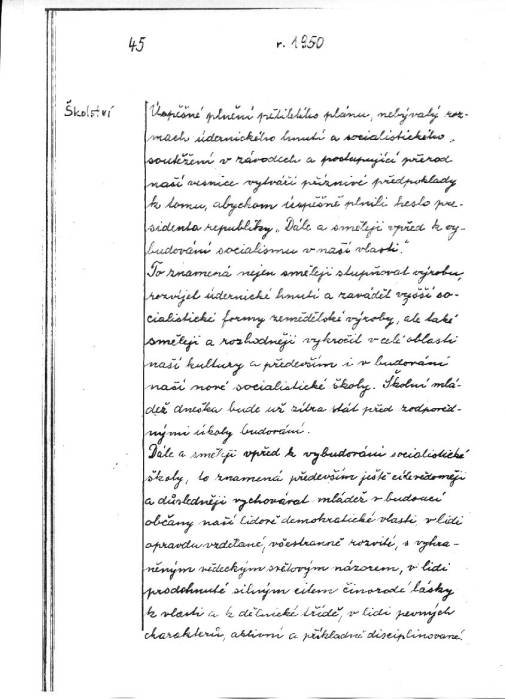 45
r. 1950
Školství
Úspěšné plnění pětiletého plánu, nebývalý roz-
mach údernického hnutí a socialistického
soutěžení v závodech a postupující přerod
naší vesnice vytváří příznivé předpoklady
k tomu, abychom úspěšně plnili heslo pre-
sidenta republiky „Dále a směleji vpřed k vy-
budování socialismu v naší vlasti."
To znamená nejen směleji stupňovat výrobu,
rozvíjet údernické hnutí a zavádět vyšší so-
cialistické formy zemědělské výroby, ale také
směleji a rozhodněji vykročit v celé oblasti
naší kultury a především i v budování
naší nové socialistické školy. Školní mlá-
dež dneška bude už zítra stát před zodpověd-
nými úkoly budování.
Dále a směleji vpřed k vybudování socialistické
školy, to znamená především ještě cílevědoměji
a důsledněji vychovávat mládež v budoucí
občany naší lidově demokratické vlasti, v lidi
opravdu vzdělané, všestranně rozvité, s vyhra-
něným vědeckým světovým názorem, v lidi
prodchnuté silným citem činorodé lásky
k vlasti a k dělnické třídě, v lidi pevných
charakterů, aktivní a příkladně disciplinované